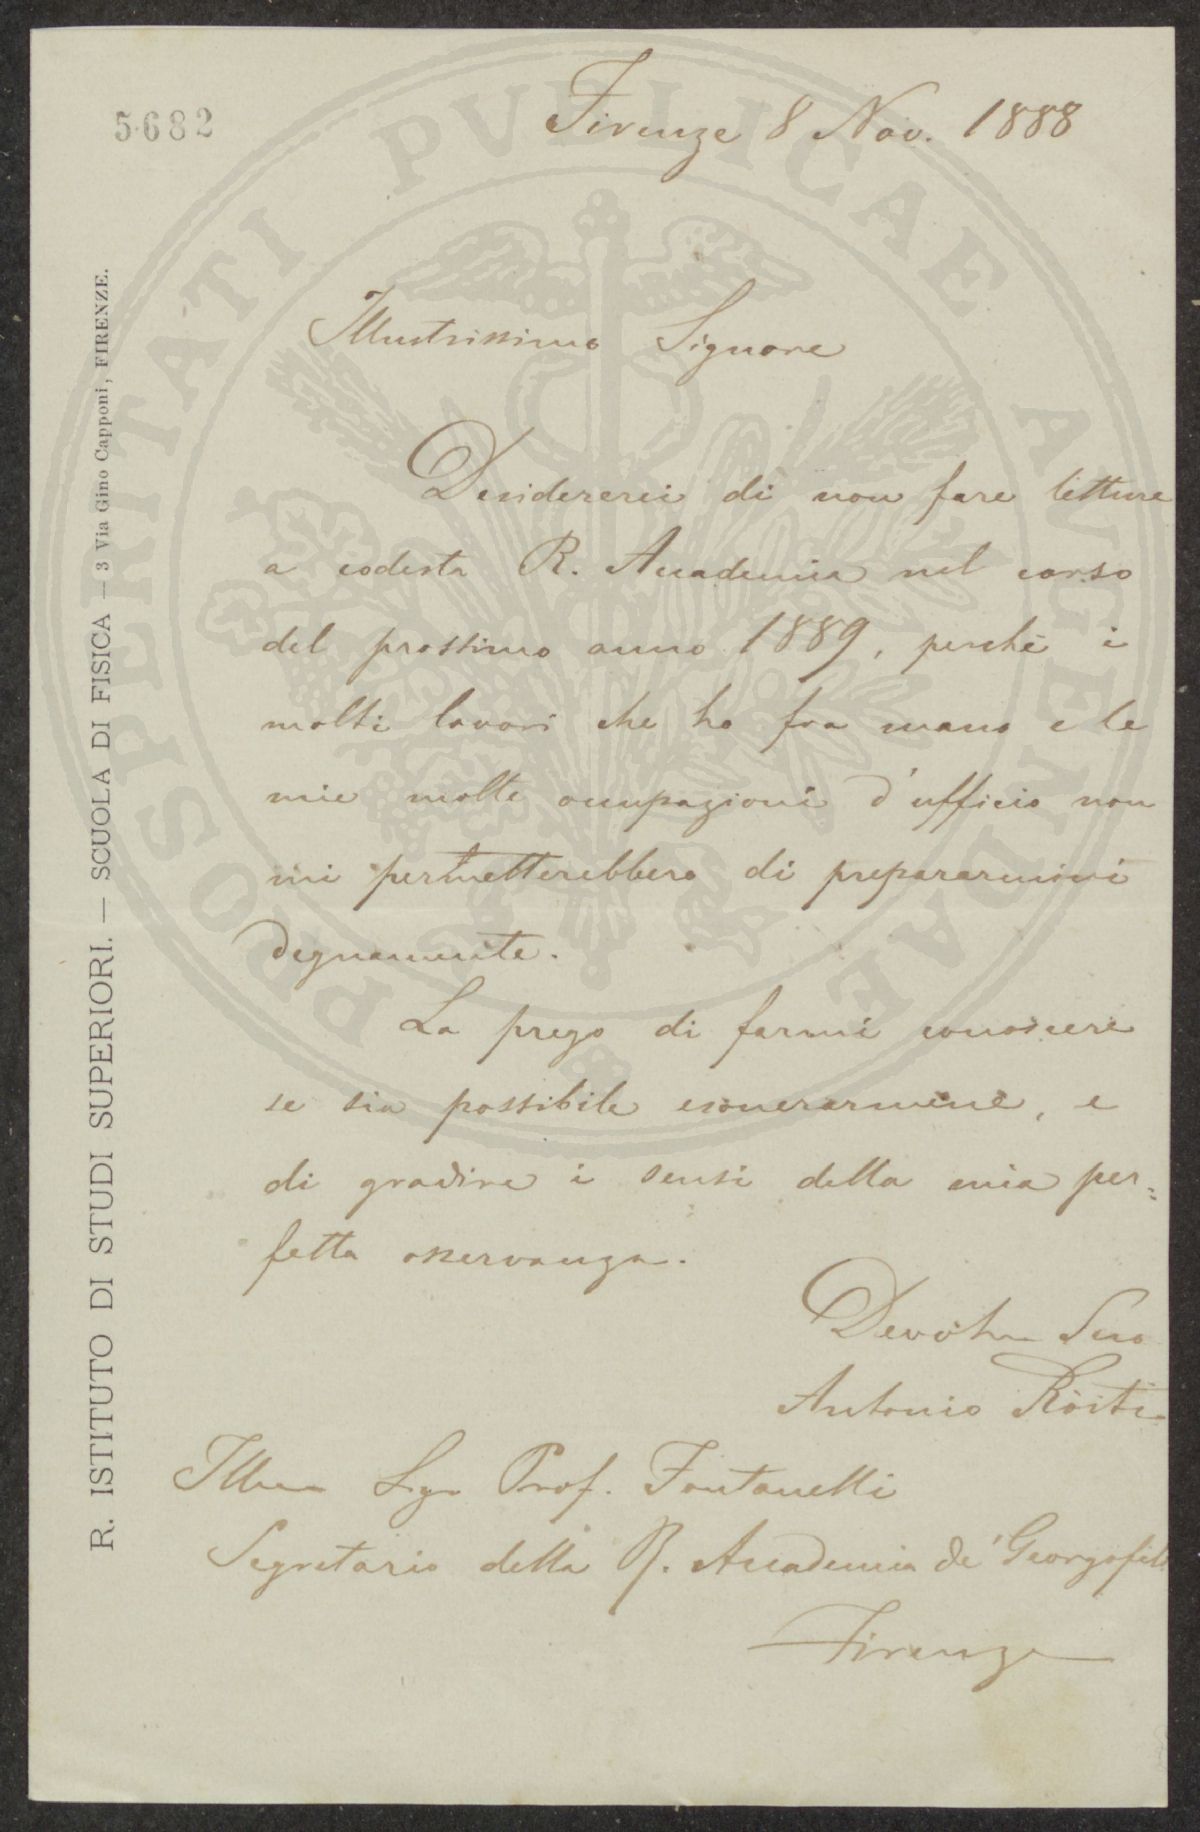 5682
Firenze 8 Nov. 1888
R. ISTITUTO DI STUDI SUPERIORI. — SCUOLA DI FISICA — 3 Via Gino Capponi, FIRENZE.
PROSPERITATI PVBLICAE AVGENDAE
Illustrissimo Signore
Desidererei di non fare letture
a codesta R. Accademia nel corso
del prossimo anno 1889, perchè i
molti lavori che ho fra mano e le
mie molte occupazioni d'ufficio non
mi permetterebbero di prepararmivi
degnamente.
La prego di farmi conoscere
se sia possibile esonerarmene, e
di gradire i sensi della mia per=
fetta osservanza.
Devotmo Suo
Antonio Ròiti
Illmo Sigr Prof. Fontanelli
Segretario della R. Accademia de' Georgofili
Firenze